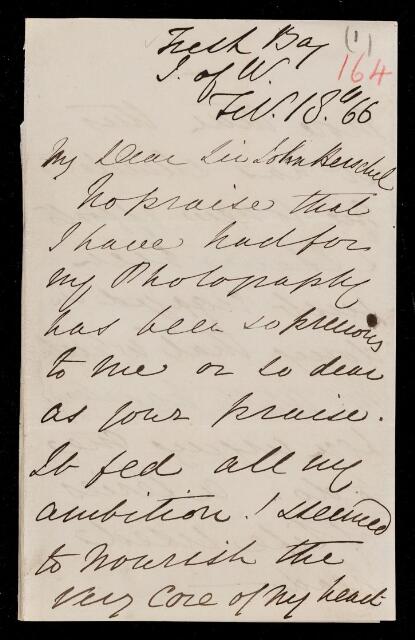 Fresh Bay (1)
I. of W. 164
Feb. 18th 66
My Dear Sir John Herschel
No praise that
I have had for
my Photography
has been so precious
to me or so dear
as your praise.
It fed all my
ambition! seemed
to nourish the
very core of my heart